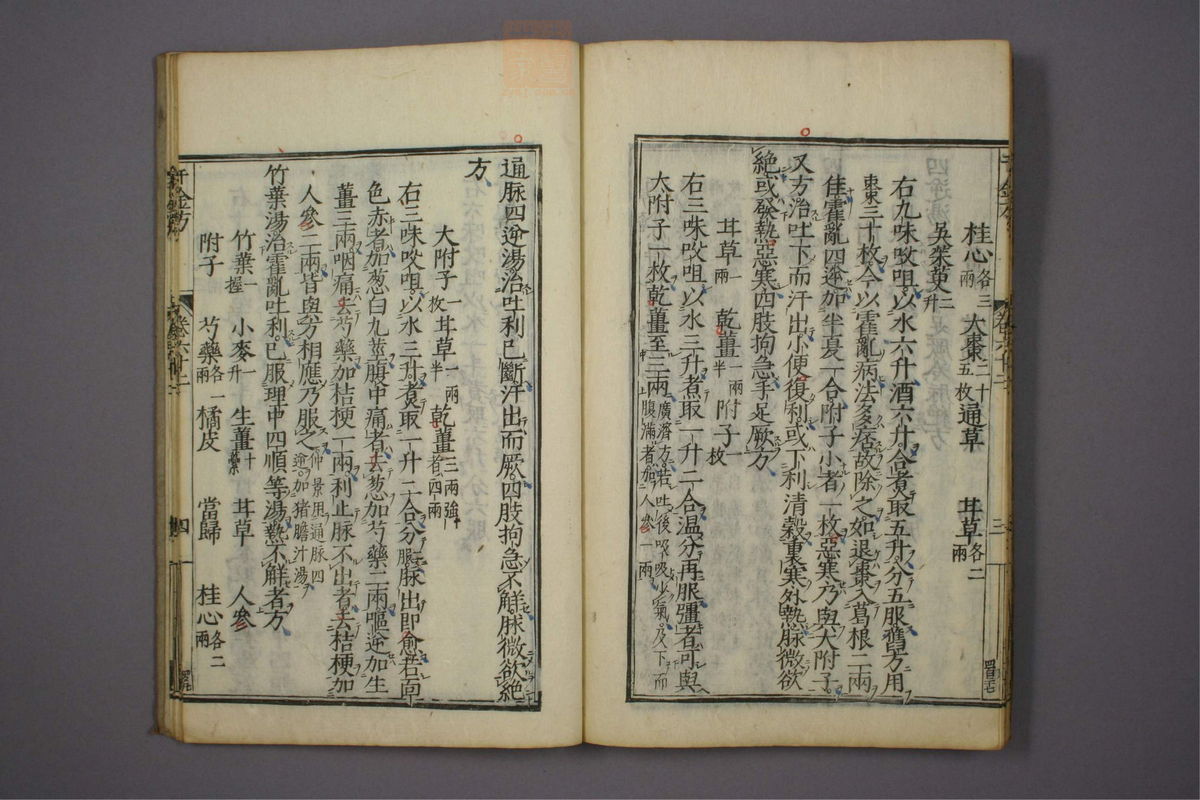 桂心各三兩 大棗二十五枚 通草 甘草各二兩
吳茱萸二升
右九味㕮咀以水六升酒六升合煮取五升分五服舊方用
棗三十枚今以霍亂病法多痞故除之如退棗入葛根二兩
佳霍亂四逆加半夏一合附子小者一枚惡寒乃與大附子
又方治吐下而汗出小便復利或下利清穀裏寒外熱脉微欲
絶或發熱惡寒四肢拘急手足厥方
甘草一兩 乾薑一兩半 附子一枚
右三味㕮咀以水三升煮取一升二合温分再服强者可與
大附子一枚乾薑至三兩廣濟方若吐後吸吸少氣及下而腹滿者加人參一兩
千金方 卷六十二 三
通脉四逆湯治吐利已斷汗出而厥四肢拘急不解脉微欲絶
方
大附子一枚 甘草一兩半 乾薑三兩強者四兩
右三味㕮咀以水三升煮取一升二合分服脉出即愈若面
色赤者加葱白九莖腹中痛者去葱加芍藥二兩嘔逆加生
薑三兩咽痛去芍藥加桔梗一兩利止脉不出者去桔梗加
人參二兩皆與方相應乃服之仲景用通脉四逆加猪膽汁湯
竹葉湯治霍亂吐利已服理中四順等湯熱不解者方
竹葉一握 小麥一升 生薑十 甘草 人參
附子 芍藥各一兩 橘皮 當歸 桂心各二兩
千金方 卷六十二 四